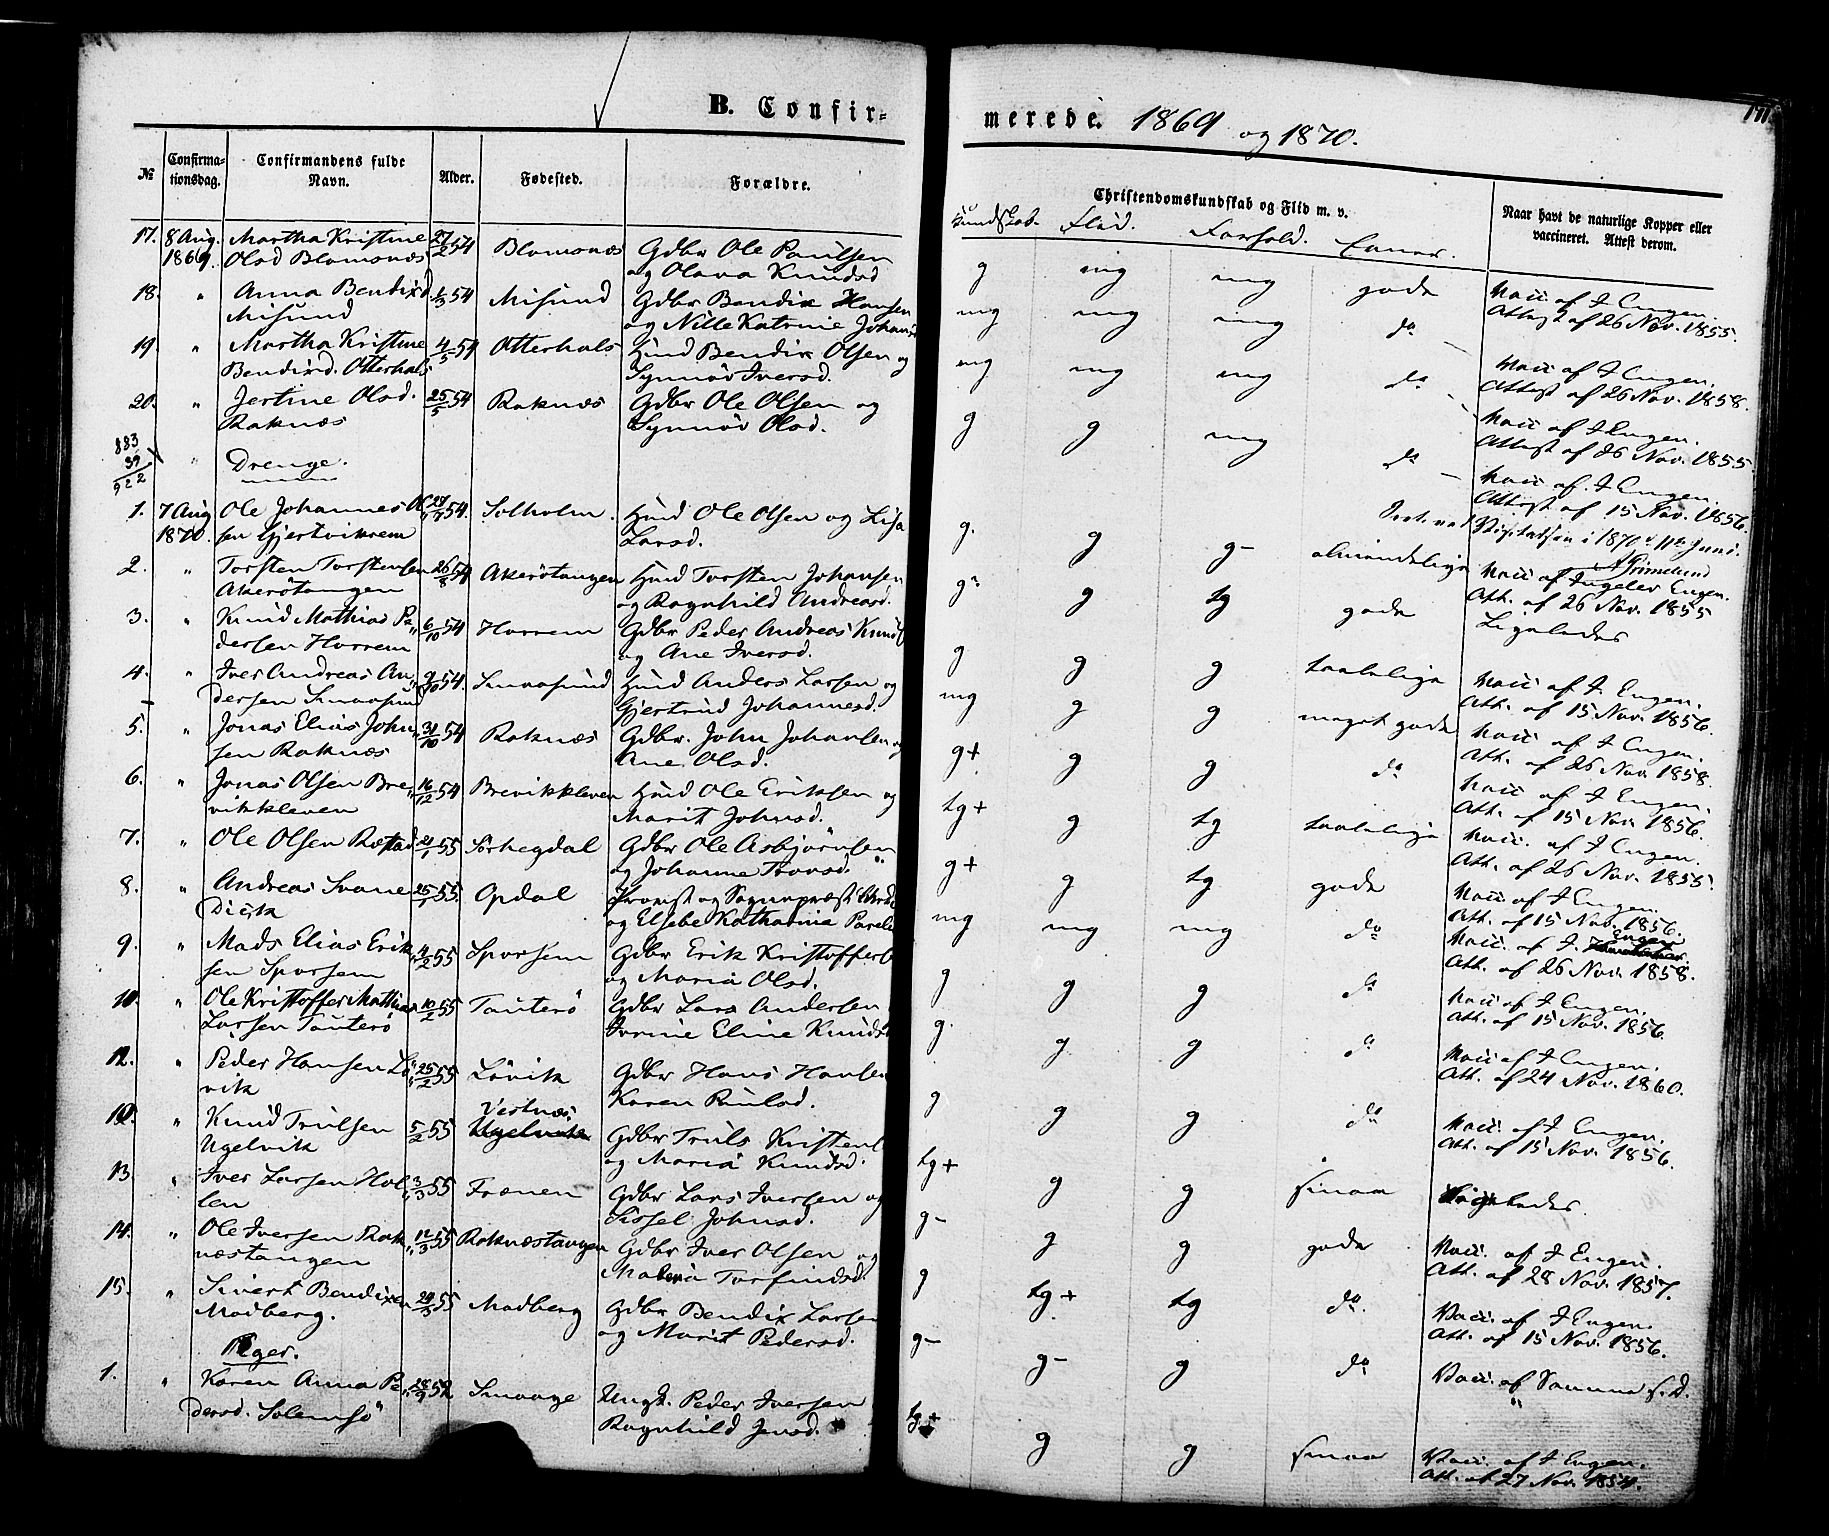 B. Confir=
merede. 1869 og 1870.
171
№
Confirma-
tionsdag.
Confirmandens fulde
Navn.
Alder.
Fødested.
Forældre.
Christendomskundskab og Flid m. v.
Kundskab. Flid. Forhold. Evner.
Naar havt de naturlige Kopper eller
vaccineret. Attest derom.
17. 8 Aug. Martha Kristine 27/2 54 Blomsnæs Gdbr Ole Paulsen g mg mg gode Vacc af J Engen.
1869. Olsd Blomsnæs og Olava Knudsd Attest af 26 Nov. 1855.
18. " Anna Bendixd 1/3 54 Misund Gdbr Bendix Hansen mg mg mg do Vacc af J Engen.
Misund og Nille Katrine Attest af 26 Nov. 1858.
19. " Martha Kristine 4/5 54 Otterhals Hmd Bendix Olsen og mg mg mg do Vacc af J Engen.
Bendixd. Otterhals Synnøv Iversd. Attest af 26 Nov. 1855.
20. " Jertine Olsd. 25/5 54 Raknæs Gdbr Ole Olsen og g g mg do Vacc af J Engen.
Raknæs Synnøv Olsd. Attest af 15 Nov. 1856.
883
39
922
" Drenge.
Visitatsen i 1870 d. 11te Juni.
Grimelund
1. 7 Aug Ole Johannes Ol 27/7 54. Solholm. Hmd Ole Olsen og Lisa g. g g- almindelige Vacc af Ingelev Engen.
1870. sen Gjertvikrem Larsd. Att. af 26 Nov. 1855
2. " Torsten Torstensen 26/8 54 Akerötangen Hmd Torsten Johansen g g tg gode Ligeledes
Akerötangen og Ragnhild Andreasd.
3. " Knud Mathias Pe 6/10 54 Harrem Gdbr Peder Andreas Knuds g g g taalelige Vacc af J Engen.
dersen Harrem og Ane Iversd. Att. af 15 Nov. 1856.
4. " Iver Andreas An 9/10 54. Hmd Anders Larsen og mg g g meget gode Vacc af J Engen.
dersen Gjertrud Johannesd. Att. af 26 Nov. 1858.
5. " Jonas Elias John 31/10 54 Raknæs Gdbr. John Johansen og g+ g g do Vacc af J Engen.
sen Raknæs Ane Olsd. Att. af 15 Nov. 1856.
6. " Jonas Olsen Bre 16/12 54 Brevikkleven Hmd Ole Eriksen og tg+ g tg taalelige Vacc. af J Engen.
vikkleven Marit Johnsd. Att. af 26 Nov. 1855.
7. " Ole Olsen 21/1 55 Sörhegdal Gdbr Ole Asbjörnsen g+ g tg gode Vacc af J Engen.
og Johanne Att. af 15 Nov. 1856.
8. " Andreas Svane 25/1 55. Opdal Provst og Sognepræst mg mg mg do Vacc. af J. Engen
Dick og Elsebe Katharina Att. af 26 Nov. 1858.
9. " Mads Elias Erik 4/2 55 Sporsem Gdbr Erik Kristoffers g g g do Vacc af J Engen.
sen Sporsem og Maria Olsd. Att. af 15 Nov. 1856.
10. " Ole Kristoffer Mathias 10/2 55 Tauterö Gdbr Lars Andersen g. g g do Vacc af J Engen.
Larsen Tauterö Eline Knuds Att. af 24 Nov. 1860.
12. " Peder Hansen Lö 25/2 55 Lövik Gdbr Hans Hansen g g g do Vacc. af J Engen.
vik Karen Paulsd. Att. af 15 Nov. 1856.
" Knud Trulsen 5/2 55 Vestnæs. Gdbr Truls Kristens tg+ g g smaa Ligeledes.
Ugelvik Ugelvik og Maria Knudsd.
13 " Iver Larsen Hol 3/3 55 Frænen Gdbr Lars Iversen og g- g g gode Vacc. af J Engen.
len Sissel Johnsd. Att. af 28 Nov. 1857.
14. " Ole Iversen Rak 12/3 55 Raknæstangen Gdbr Iver Olsen og g tg+ tg do. Vacc. af J Engen.
næstangen Torfindsd. Att. af 15 Nov. 1856.
15. " Sivert Bendixen 29/3 55 Madberg Gdbr Bendix Larsen g- g- g do Vacc. af Samme s. D.
Madberg. og Marit Pedersd.
Piger.
1. " Karen Anna Pe 28/9 52 Smaage Ungk. Peder Iversen tg+ g g smaa Vacc. af J Engen.
dersd. Solemsö Ragnhild Jensd. Att. af 27 Nov. 1854.